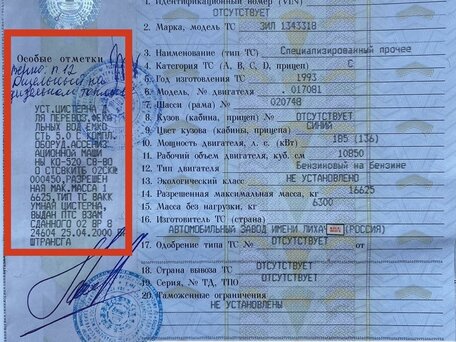 Особые отметки
верно: п. 12
на
УСТ.ЦИСТЕРНА Д
ЛЯ ПЕРЕВОЗ.ФЕКА
ЛЬНЫХ ВОД ЕМКО
СТЬ 5.0 С КОМПЛ.
ОБОРУД.АССЕНИЗ
АЦИОННОЙ МАШИ
НЫ КО-520 СВ-ВО
О СТВЕКИТБ 02СКШ
000450,РАЗРЕШЕН
НАЯ МАК.МАССА 1
6625,ТИП ТС ВАКК
УМНАЯ ЦИСТЕРНА,
ВЫДАН ПТС ВЗАМ
СДАННОГО 02 ВР 8
24604 25.04.2000 ВР
ШТРАНСГА
1. Идентификационный номер (VIN)
ОТСУТСТВУЕТ
2. Марка, модель ТС ЗИЛ 1343318
3. Наименование (тип ТС) Специализированный прочее
4. Категория ТС (A, B, C, D, прицеп) C
5. Год изготовления ТС 1993
6. Модель, № двигателя . 017081
7. Шасси (рама) № 020748
8. Кузов (кабина, прицеп) № ОТСУТСТВУЕТ
9. Цвет кузова (кабины, прицепа) СИНИЙ
10. Мощность двигателя, л. с. (кВт) 185 (136)
11. Рабочий объем двигателя, куб. см 10850
12. Тип двигателя Бензиновый на Бензине
13. Экологический класс НЕ УСТАНОВЛЕНО
14. Разрешенная максимальная масса, кг 16625
15. Масса без нагрузки, кг 6300
16. Изготовитель ТС (страна)
АВТОМОБИЛЬНЫЙ ЗАВОД ИМЕНИ ЛИХАЧ (РОССИЯ)
17. Одобрение типа ТС № ОТСУТСТВУЕТ
18. Страна вывоза ТС ОТСУТСТВУЕТ
19. Серия, № ТД, ТПО ОТСУТСТВУЕТ
20. Таможенные ограничения
НЕ УСТАНОВЛЕНЫ